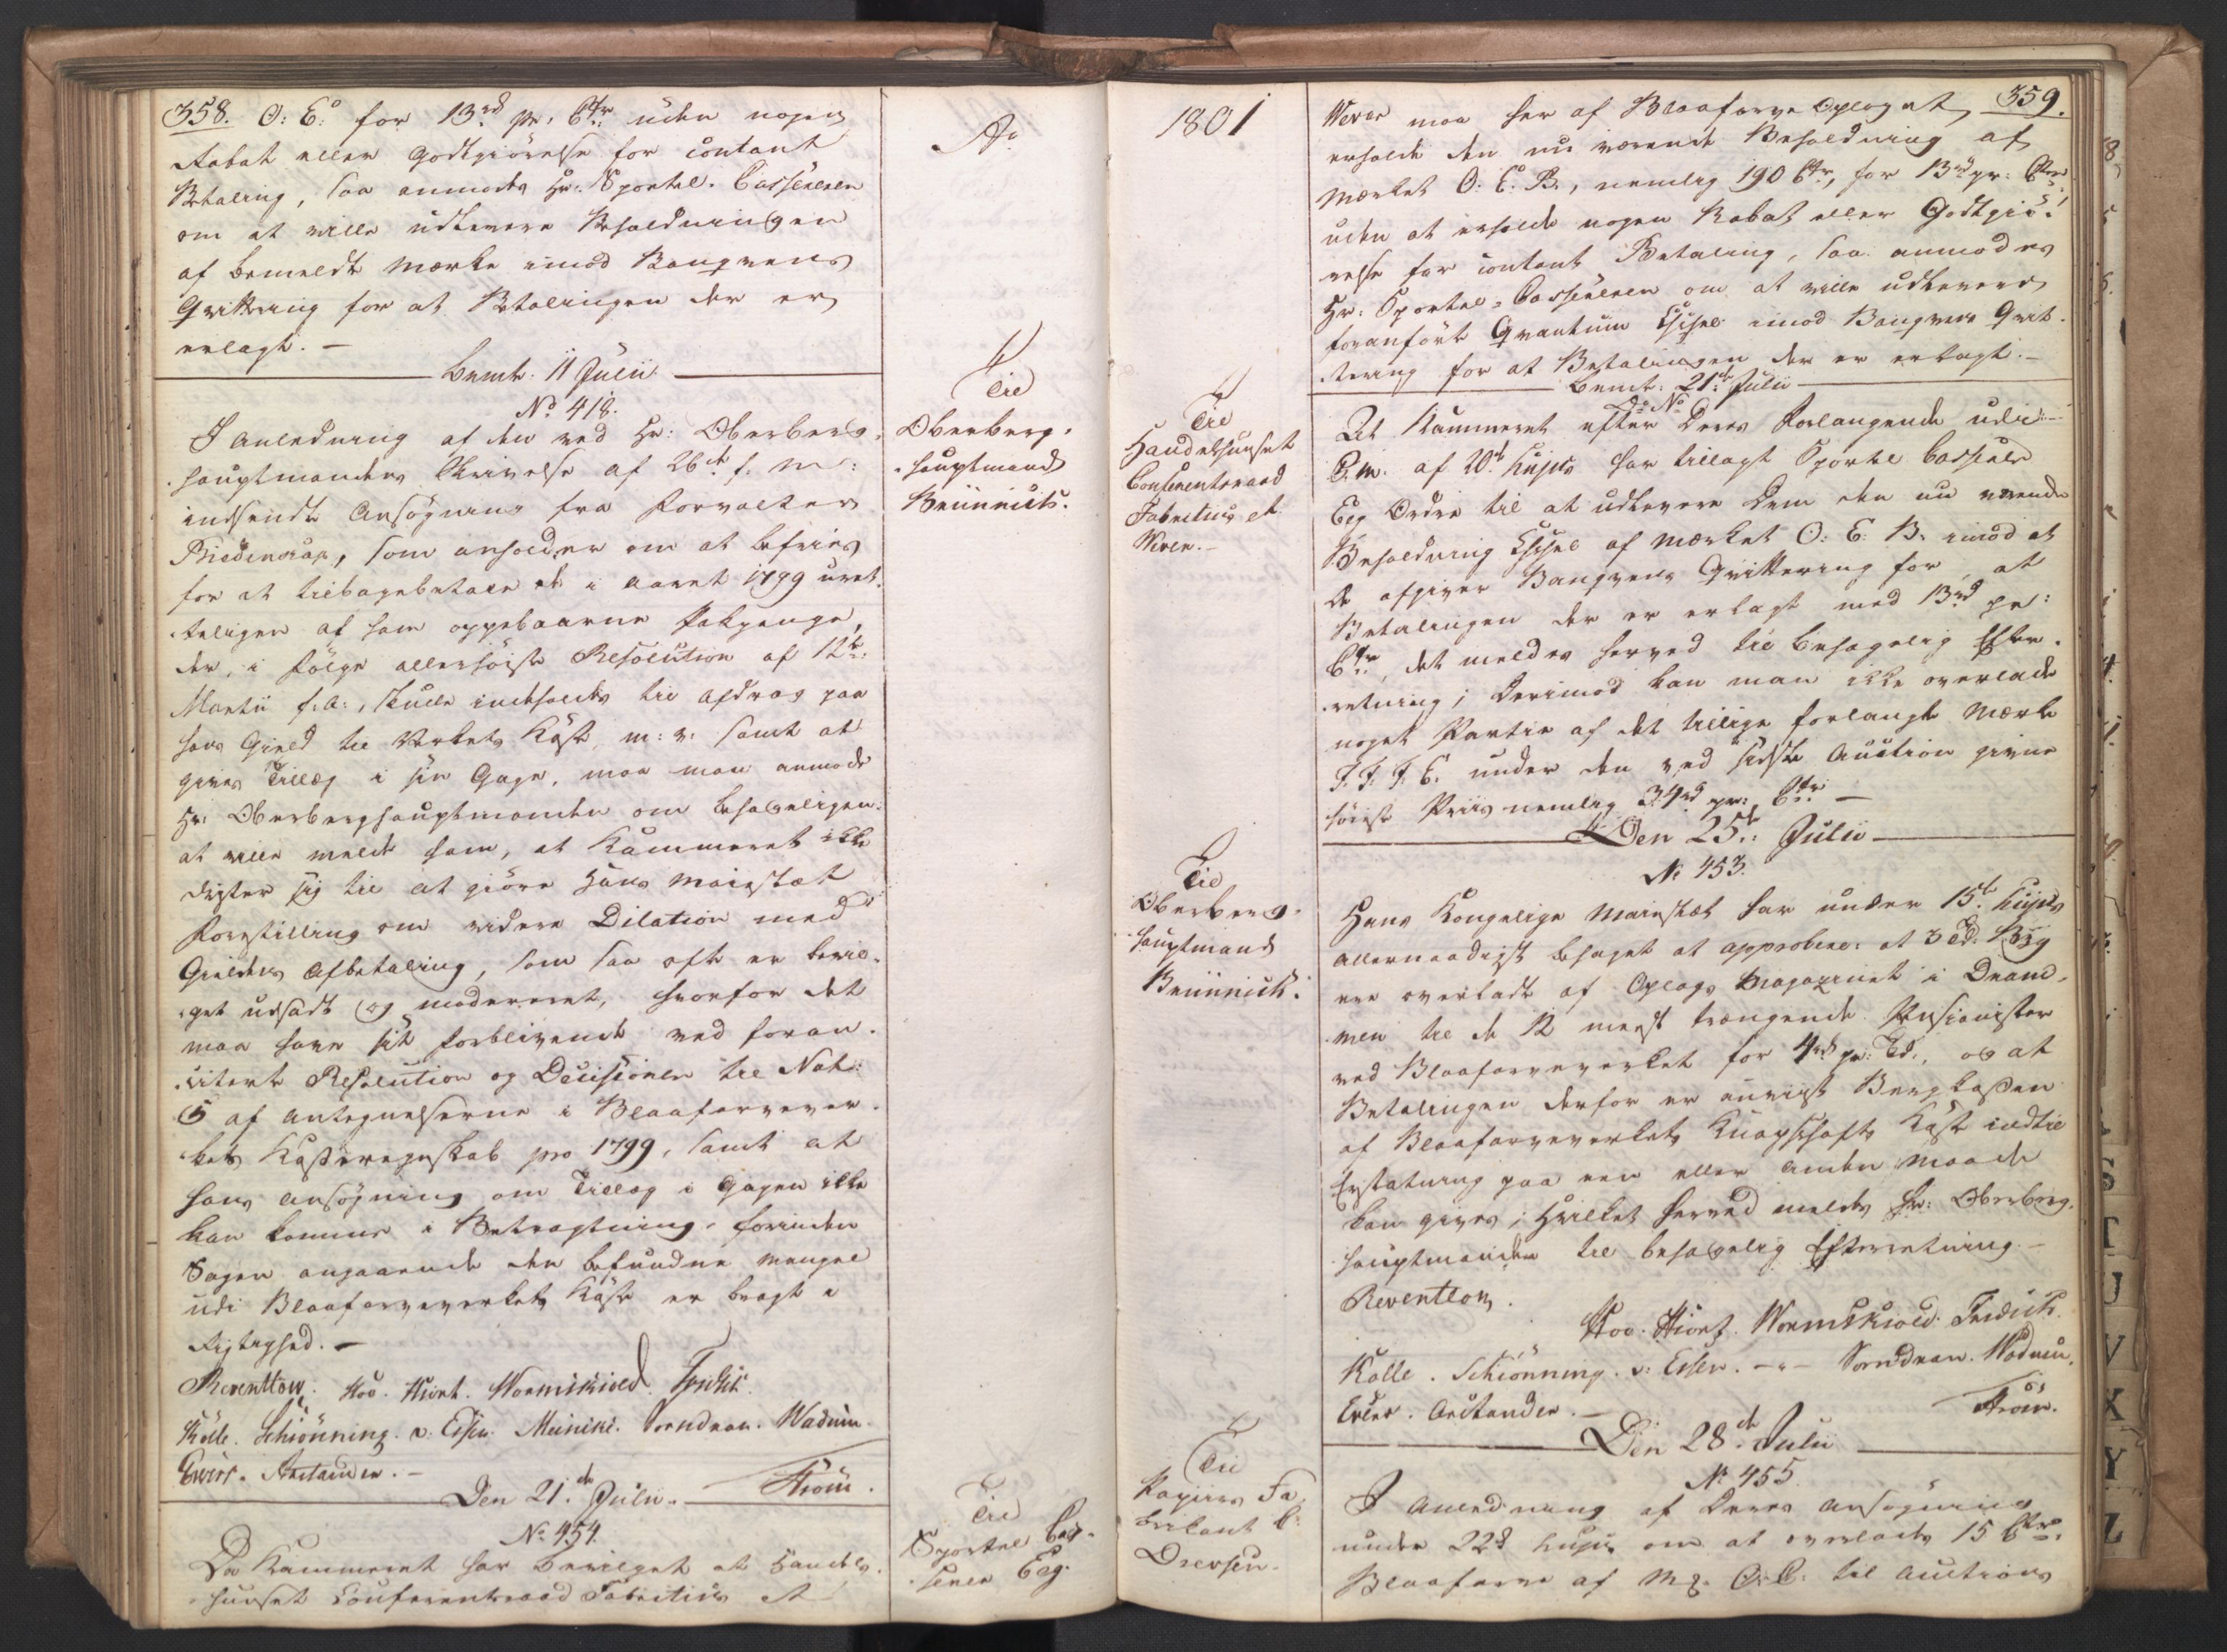 358. O: E: for 13 rd pr. Ctr. uden nogen
Rabat eller Godtgiörelse for contant
Betaling, saa anmodes Hr: Sportel-Casserer
om at ville udlevere Beholdningen
af bemeldte Mærke imod Banqvens
Qvittering for at Betalingen der er
erlagt. —
bemte: 11 Julii
No 418.
I Anledning af den ved Hr: Oberberg-
hauptmandens Skrivelse af 26de f. M:
indsendte Ansøgning fra Forvalter
som anholder om at befries
for at tilbagebetale de i Aaret 1799 uret-
teligen af ham oppebaarne
der, i Følge allerhöiste Resolution af 12te
Martii f: a:, skulle indeholdes til Afdrag paa
hans Gield til Verkets Kasse, m: v: samt at
gives Tillæg i sin Gage, maa man anmode
Hr: Oberberghauptmanden om behageligen
at ville melde ham, at Kammeret ikke
drister sig til at giöre Hans Maiestæt
Forestilling om videre Dilation med
Gieldens Afbetaling, som saa ofte er bevil-
get udsadt og modereret, hvorfor det
maa have sit Forblivende ved foran-
citerte Resolution og Decisionen til Not:
5 af Antegnelserne i Blaafarvever-
kets Kasseregnskab pro 1799, samt at
hans Ansögning om Tillæg i Gagen ikke
kan komme i Betragtning, forinden
Sagen angaaende den befundne Mangel
udi Blaafarveverkets Kasse er bragt i
Rigtighed. —
Reventlow. Hoe. Hiort. Wormskiold.
Kölle. Schiönning. v: Essen. Meinike. Sorndran. Wadum.
Ewers. Arctander. —
Ström.
Den 21de Julii.
No 454.
Da Kammeret har bevilget at Handels-
huuset Conferentsraad Fabritius et
Ao
Til
Oberberg-
hauptmand
Brünnich.
Til
Sportel Cas-
serer Eeg.
1801
Til
Handelshuuset
Conferentsraad
Fabritius et
Wever. —
Til
Oberberg-
hauptmand
Brünnich.
Til
Papiir Fa-
brikant
Drevsen.
359.
Wever maa her af Blaafarve Oplaget
erholde den nu værende Beholdning af
Mærket O: E: B:, nemlig 190 Ctr, for 13 rd pr: Ctr
uden at erholde nogen Rabat eller Godtgiö-
relse for contant Betaling, saa anmodes
Hr: Sportel-Casserer om at ville udlevere
foranförte Qvantum imod Banqvens Qvit-
tering for at Betalingen der er erlagt. —
bemte: 21de Julii
Do No
At Kammeret efter Deres Forlangende udi
P. M. af 20de hujus har tillagt Sportel Casserer
Eeg Ordre til at udlevere Dem den nu værende
Beholdning af Mærket O: E: B: imod at
De afgiver Banqvens Qvittering for, at
Betalingen der er erlagt med 13 rd pr:
Ctr, det meldes herved til behagelig Efter-
retning; derimod kan man ikke overlade
noget Partie af det tillige forlangte Mærke
F. F. F. E. under den ved sidste Auction givne
höieste Priis nemlig 34 rd pr: Ctr —
Den 25de Julii
No 453.
Hans Kongelige Maiestæt har under 15de hujus
allernaadigst behaget at approbere: at 3 Td: Byg
ere overladt af Oplags Magazinet i Dram-
men til de 12 meest trængende Pensionister
ved Blaafarveverket for 4 rd pr: Td:, og at
Betalingen derfor er anviist Bergkassen
af Blaafarveverkets Knapschafts Kasse indtil
Erstatning paa een eller anden Maade
kan gives; hvilket herved meldes Hr: Oberberg-
hauptmanden til behagelig Efterretning. —
Reventlow.
Hoe. Hiort. Wormskiold.
Kölle. Schiönning. v: Essen. — Sorndran. Wadum.
Ewers. Arctander. —
Ström.
Den 28de Julii
No 455.
I Anledning af Deres Ansögning
under 22de hujus om at overlades 15 Ctr.
Blaafarve af M: O. C. til Auctions
S
T
U
V
X
Y
Z